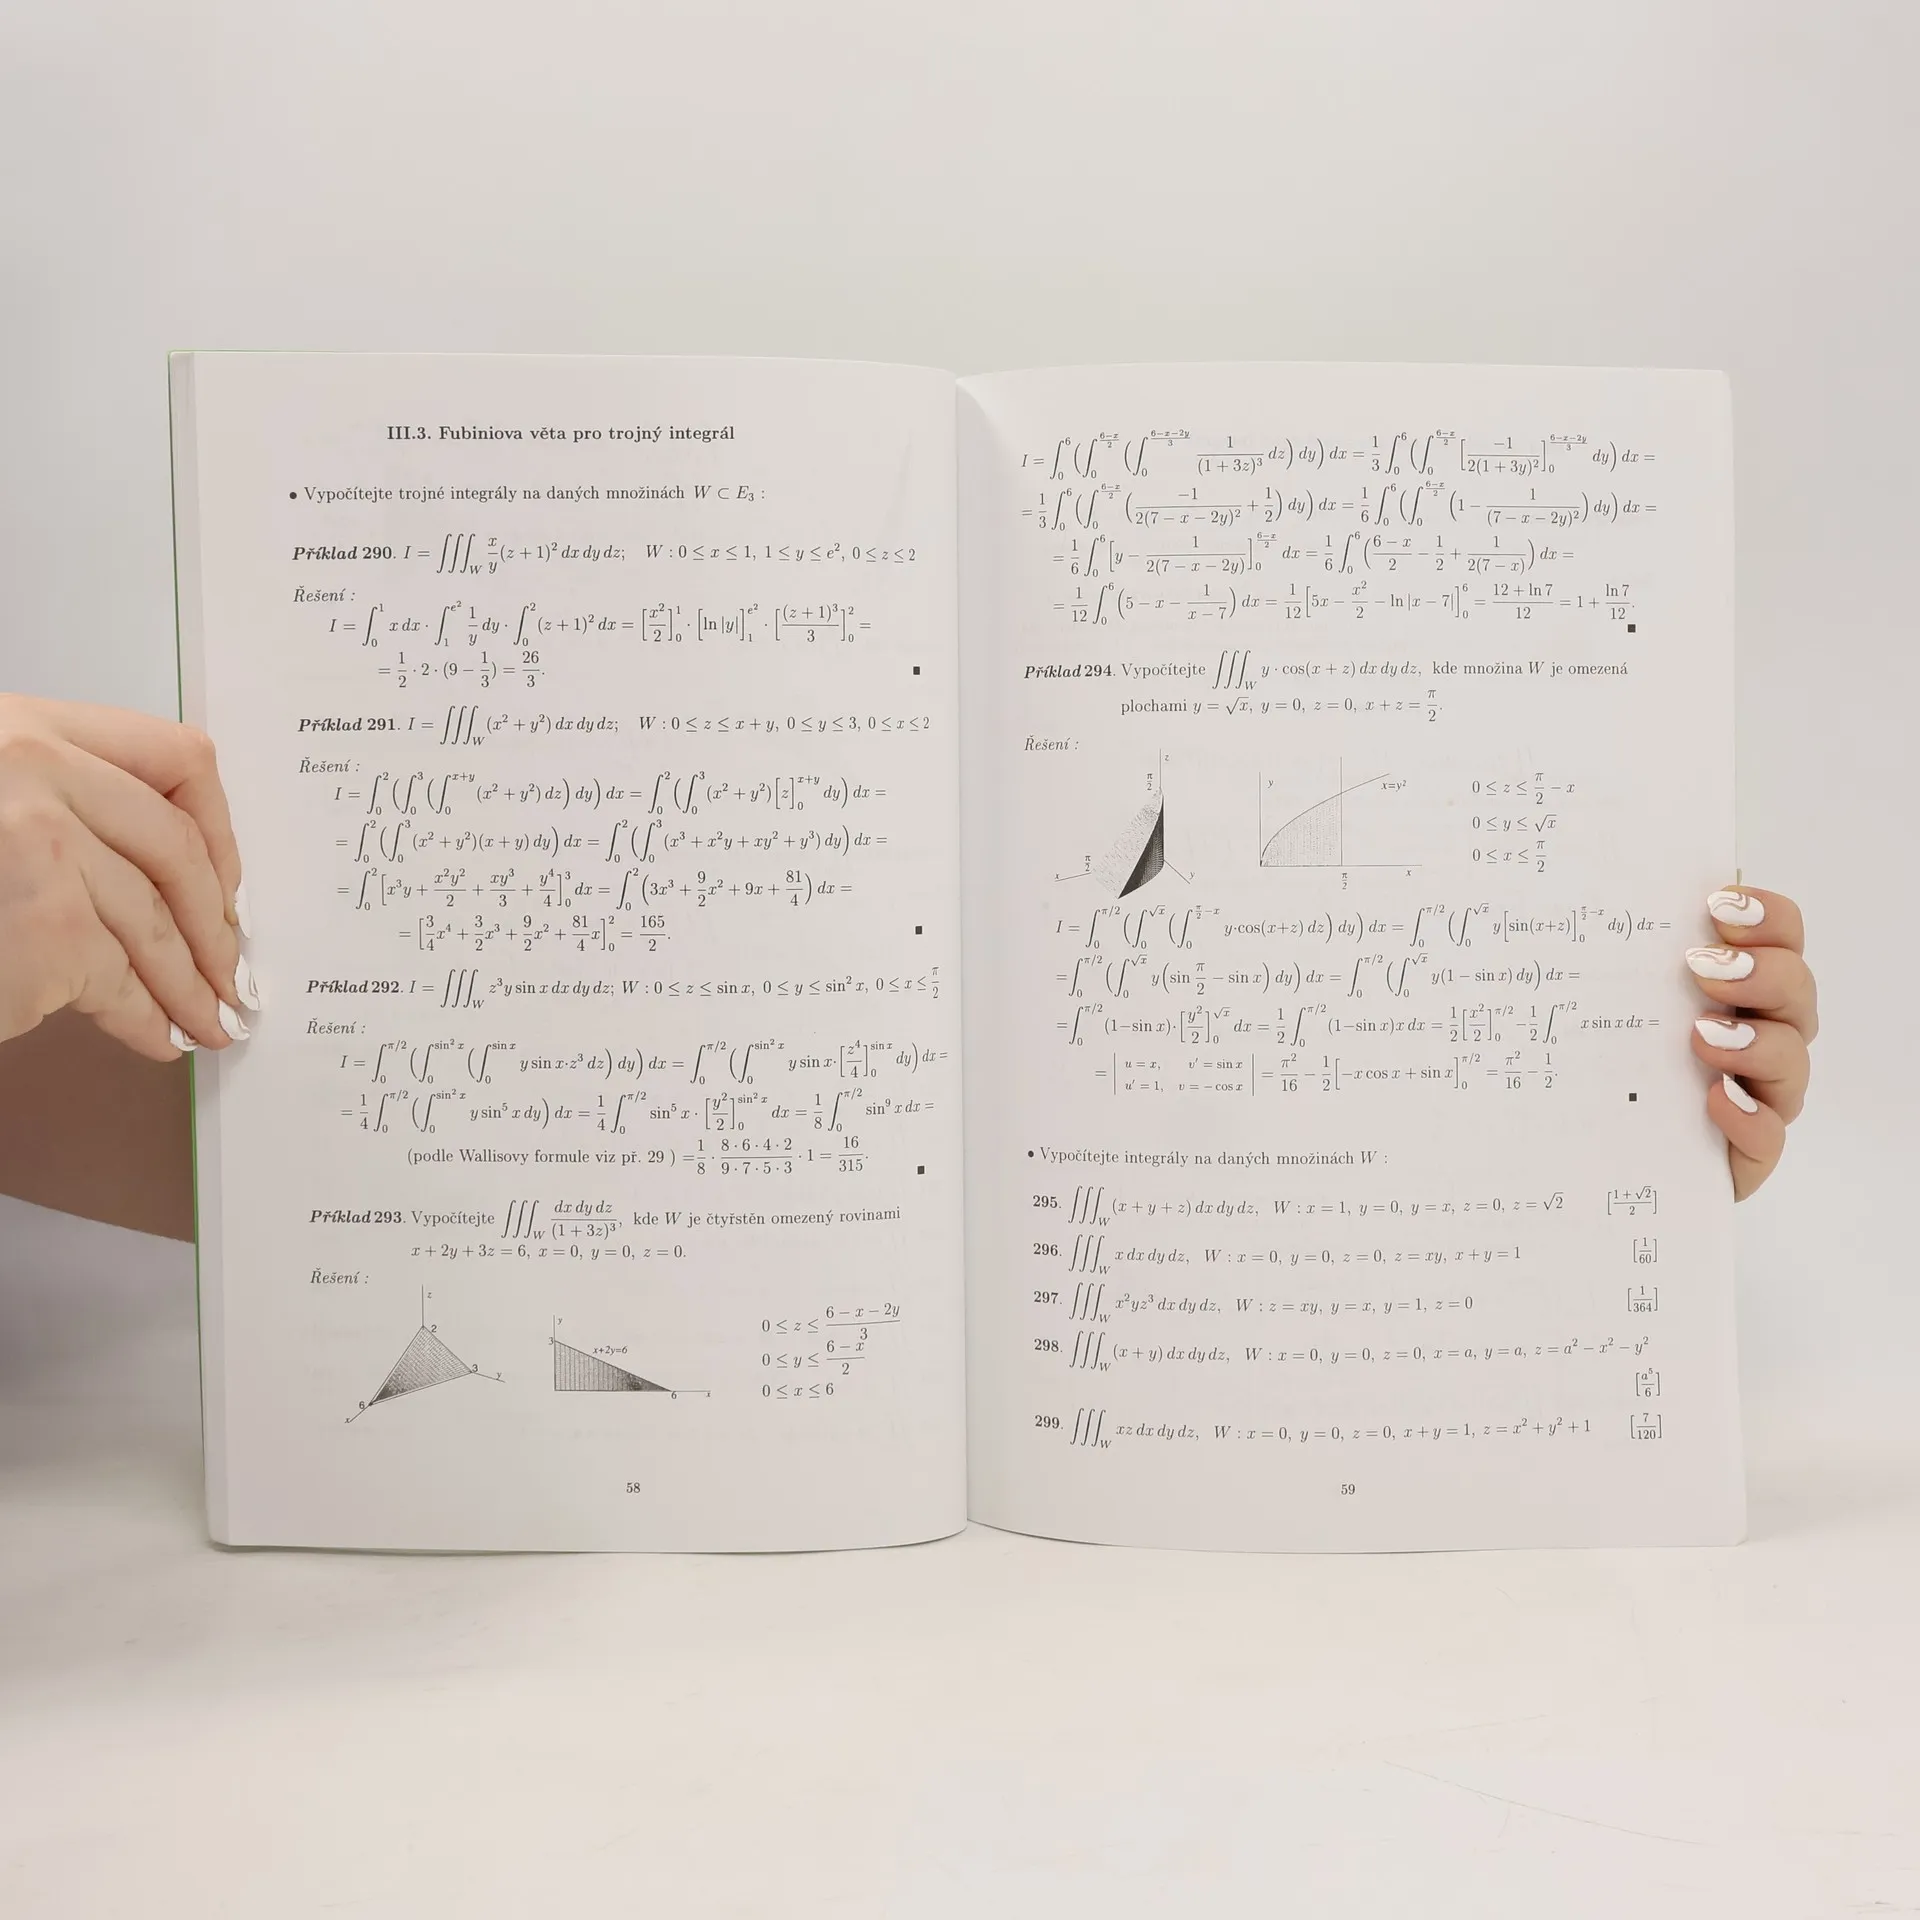 III.3. Fubiniova věta pro trojný integrál
• Vypočítejte trojné integrály na daných množinách W ⊂ E₃ :
Příklad 290. I = ∭_W x/y (z + 1)² dx dy dz; W : 0 ≤ x ≤ 1, 1 ≤ y ≤ e², 0 ≤ z ≤ 2
Řešení :
I = ∫₀¹ x dx · ∫₁^{e²} 1/y dy · ∫₀² (z + 1)² dx = [x²/2]₀¹ · [ln |y|]₁^{e²} · [(z + 1)³/3]₀² =
= 1/2 · 2 · (9 − 1/3) = 26/3. ■
Příklad 291. I = ∭_W (x² + y²) dx dy dz; W : 0 ≤ z ≤ x + y, 0 ≤ y ≤ 3, 0 ≤ x ≤ 2
Řešení :
I = ∫₀² (∫₀³ (∫₀^{x+y} (x² + y²) dz) dy) dx = ∫₀² (∫₀³ (x² + y²)[z]₀^{x+y} dy) dx =
= ∫₀² (∫₀³ (x² + y²)(x + y) dy) dx = ∫₀² (∫₀³ (x³ + x²y + xy² + y³) dy) dx =
= ∫₀² [x³y + x²y²/2 + xy³/3 + y⁴/4]₀³ dx = ∫₀² (3x³ + 9/2 x² + 9x + 81/4) dx =
= [3/4 x⁴ + 3/2 x³ + 9/2 x² + 81/4 x]₀² = 165/2. ■
Příklad 292. I = ∭_W z³y sin x dx dy dz; W : 0 ≤ z ≤ sin x, 0 ≤ y ≤ sin² x, 0 ≤ x ≤ π/2
Řešení :
I = ∫₀^{π/2} (∫₀^{sin² x} (∫₀^{sin x} y sin x·z³ dz) dy) dx = ∫₀^{π/2} (∫₀^{sin² x} y sin x·[z⁴/4]₀^{sin x} dy) dx =
= 1/4 ∫₀^{π/2} (∫₀^{sin² x} y sin⁵ x dy) dx = 1/4 ∫₀^{π/2} sin⁵ x · [y²/2]₀^{sin² x} dx = 1/8 ∫₀^{π/2} sin⁹ x dx =
(podle Wallisovy formule viz př. 29 ) = 1/8 · 8·6·4·2/9·7·5·3 · 1 = 16/315. ■
Příklad 293. Vypočítejte ∭_W dx dy dz/(1 + 3z)³, kde W je čtyřstěn omezený rovinami
x + 2y + 3z = 6, x = 0, y = 0, z = 0.
Řešení :
z
2
3
y
6
x
y
3
x+2y=6
6
x
0 ≤ z ≤ (6 − x − 2y)/3
0 ≤ y ≤ (6 − x)/2
0 ≤ x ≤ 6
58
I = ∫₀⁶ (∫₀^{(6−x)/2} (∫₀^{(6−x−2y)/3} 1/(1 + 3z)³ dz) dy) dx = 1/3 ∫₀⁶ (∫₀^{(6−x)/2} [−1/2(1 + 3y)²]₀^{(6−x−2y)/3} dy) dx =
= 1/3 ∫₀⁶ (∫₀^{(6−x)/2} (−1/2(7 − x − 2y)² + 1/2) dy) dx = 1/6 ∫₀⁶ (∫₀^{(6−x)/2} (1 − 1/(7 − x − 2y)²) dy) dx =
= 1/6 ∫₀⁶ [y − 1/2(7 − x − 2y)]₀^{(6−x)/2} dx = 1/6 ∫₀⁶ ((6 − x)/2 − 1/2 + 1/2(7 − x)) dx =
= 1/12 ∫₀⁶ (5 − x − 1/(x − 7)) dx = 1/12 [5x − x²/2 − ln |x − 7|]₀⁶ = (12 + ln 7)/12 = 1 + ln 7/12. ■
Příklad 294. Vypočítejte ∭_W y · cos(x + z) dx dy dz, kde množina W je omezená
plochami y = √x, y = 0, z = 0, x + z = π/2.
Řešení :
z
π/2
π/2
x
y
y
x=y²
π/2
x
0 ≤ z ≤ π/2 − x
0 ≤ y ≤ √x
0 ≤ x ≤ π/2
I = ∫₀^{π/2} (∫₀^{√x} (∫₀^{π/2−x} y·cos(x+z) dz) dy) dx = ∫₀^{π/2} (∫₀^{√x} y[sin(x+z)]₀^{π/2−x} dy) dx =
= ∫₀^{π/2} (∫₀^{√x} y(sin π/2 − sin x) dy) dx = ∫₀^{π/2} (∫₀^{√x} y(1 − sin x) dy) dx =
= ∫₀^{π/2} (1−sin x)·[y²/2]₀^{√x} dx = 1/2 ∫₀^{π/2} (1−sin x)x dx = 1/2 [x²/2]₀^{π/2} − 1/2 ∫₀^{π/2} x sin x dx =
= | u = x, v′ = sin x
u′ = 1, v = − cos x | = π²/16 − 1/2 [−x cos x + sin x]₀^{π/2} = π²/16 − 1/2. ■
• Vypočítejte integrály na daných množinách W :
295. ∭_W (x + y + z) dx dy dz, W : x = 1, y = 0, y = x, z = 0, z = √2 [(1 + √2)/2]
296. ∭_W x dx dy dz, W : x = 0, y = 0, z = 0, z = xy, x + y = 1 [1/60]
297. ∭_W x²yz³ dx dy dz, W : z = xy, y = x, y = 1, z = 0 [1/364]
298. ∭_W (x + y) dx dy dz, W : x = 0, y = 0, z = 0, x = a, y = a, z = a² − x² − y²
[a⁵/6]
299. ∭_W xz dx dy dz, W : x = 0, y = 0, z = 0, x + y = 1, z = x² + y² + 1 [7/120]
59